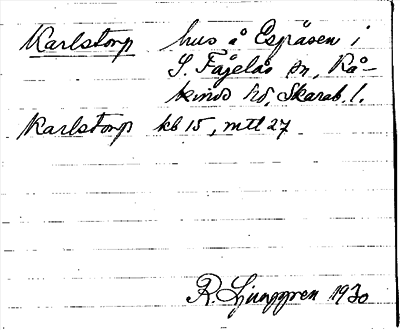 Karlstorp hus å Espåsen i
S. Fågelås sn, Kå-
kinds hd, Skarab. l.
Karlstorp kb 15, mtl 27.
R. Ljunggren 1930